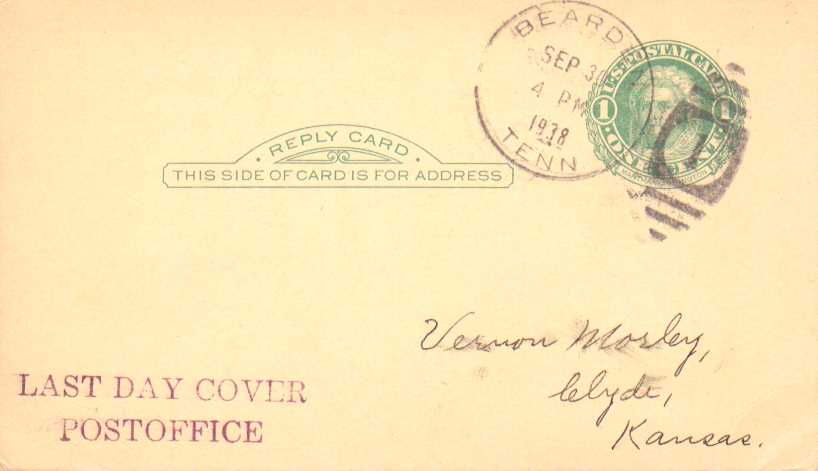 BEARD
SEP 30
4 PM
1938
TENN
U.S. POSTAL CARD
1 1
ONE CENT
· REPLY CARD ·
THIS SIDE OF CARD IS FOR ADDRESS
Vernon Mosley,
Clyde,
Kansas.
LAST DAY COVER
POSTOFFICE